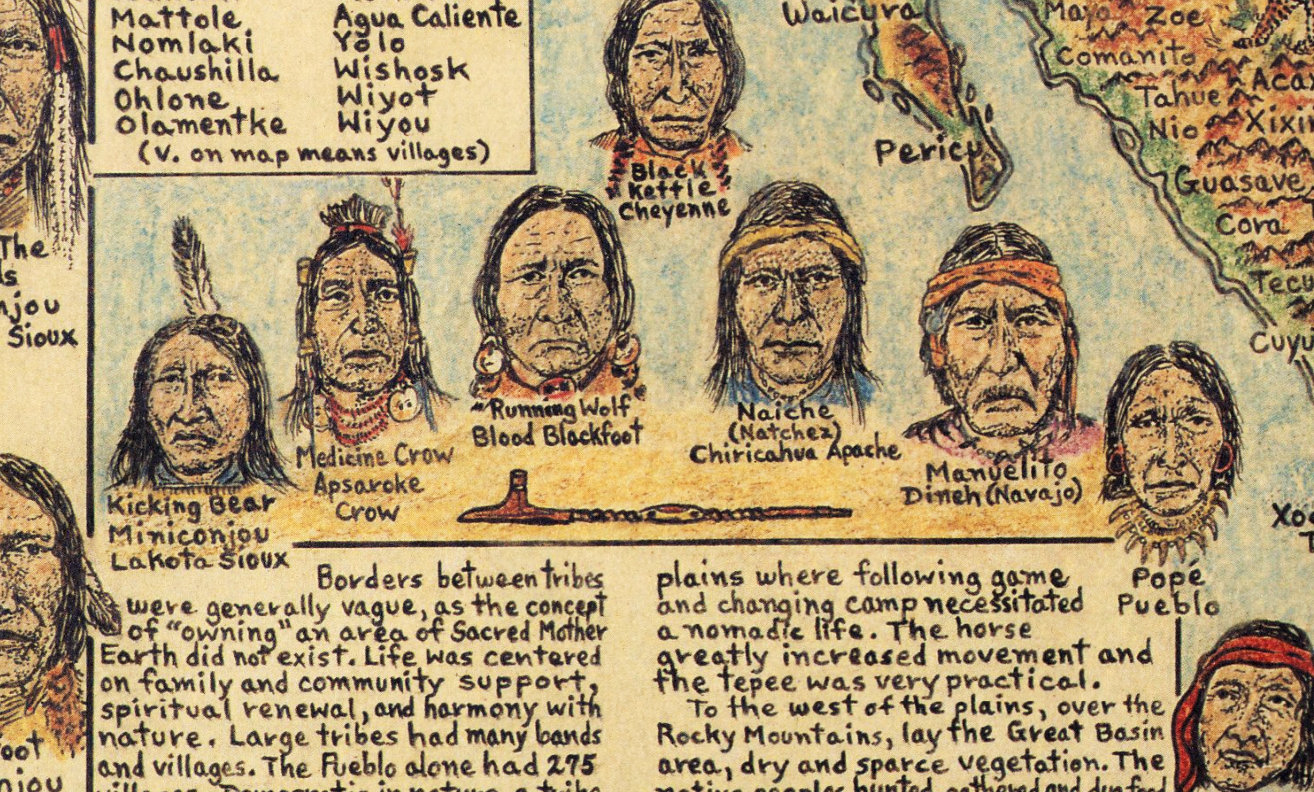 Mattole
Nomlaki
Chaushilla
Ohlone
Olamentke
Agua Caliente
Yolo
Wishosk
Wiyot
Wiyou
(V. on map means villages)
Black
Kettle
Cheyenne
Waicura
Pericu
Mayo
Zoe
Comanito
Tahue
Nio
Guasave
Cora
The
Sioux
Kicking Bear
Miniconjou
Lakota Sioux
Medicine Crow
Apsaroke
Crow
Running Wolf
Blood Blackfoot
Naiche
(Natchez)
Chiricahua Apache
Manuelito
Dineh (Navajo)
Popé
Pueblo
Borders between tribes
were generally vague, as the concept
of "owning" an area of Sacred Mother
Earth did not exist. Life was centered
on family and community support,
spiritual renewal, and harmony with
nature. Large tribes had many bands
and villages. The Pueblo alone had 275
plains where following game
and changing camp necessitated
a nomadic life. The horse
greatly increased movement and
the tepee was very practical.
To the west of the plains, over the
Rocky Mountains, lay the Great Basin
area, dry and sparce vegetation. The